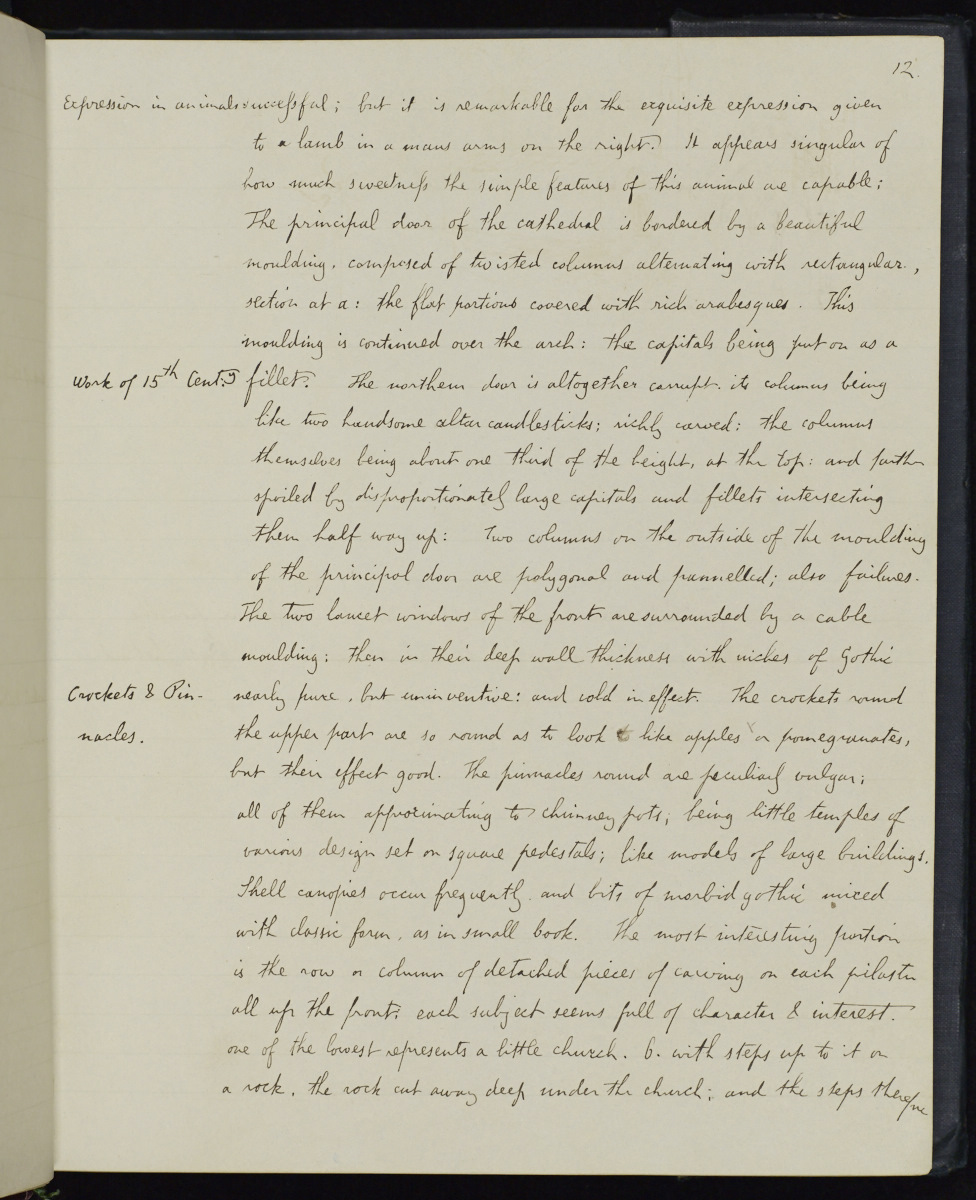 12.
Expression in animals successful; but it is remarkable for the exquisite expression given
to a lamb in a mans arms on the right. It appears singular of
how much sweetness the simple features of this animal are capable;
The principal door of the cathedral is bordered by a beautiful
moulding, composed of twisted columns alternating with rectangular,
section at a: the flat portions covered with rich arabesques. This
moulding is continued over the arch: the capitals being put on as a
Work of 15th Cent.y fillet. The northern door is altogether corrupt. its columns being
like two handsome altar candlesticks; richly carved: the columns
themselves being about one third of the height, at the top: and further
spoiled by disproportionately large capitals and fillets intersecting
them half way up: Two columns on the outside of the moulding
of the principal door are polygonal and pannelled; also failures.
The two lancet windows of the front are surrounded by a cable
moulding: then in their deep wall thickness with niches of Gothic
Crockets & Pin- nearly pure, but uninventive: and cold in effect. The crockets round
nacles. the upper part are so round as to look like apples or pomegranates,
but their effect good. The pinnacles round are peculiarly vulgar;
all of them approximating to chimney pots; being little temples of
various design set on square pedestals; like models of large buildings.
Shell canopies occur frequently, and bits of morbid gothic mixed
with classic form, as in small book. The most interesting portion
is the row or column of detached pieces of carving on each pilaster
all up the front: each subject seems full of character & interest.
one of the lowest represents a little church. b. with steps up to it on
a rock, the rock cut away deep under the church; and the steps therefore